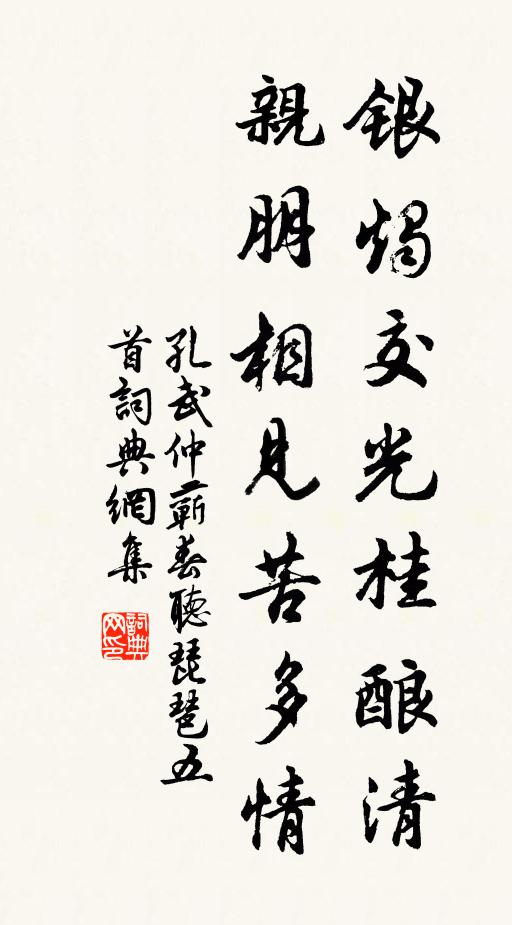 銀燭交光桂酿清
親朋相見苦多情
孔武仲蘄春聽琵琶五
首詞典網集
詞典网印